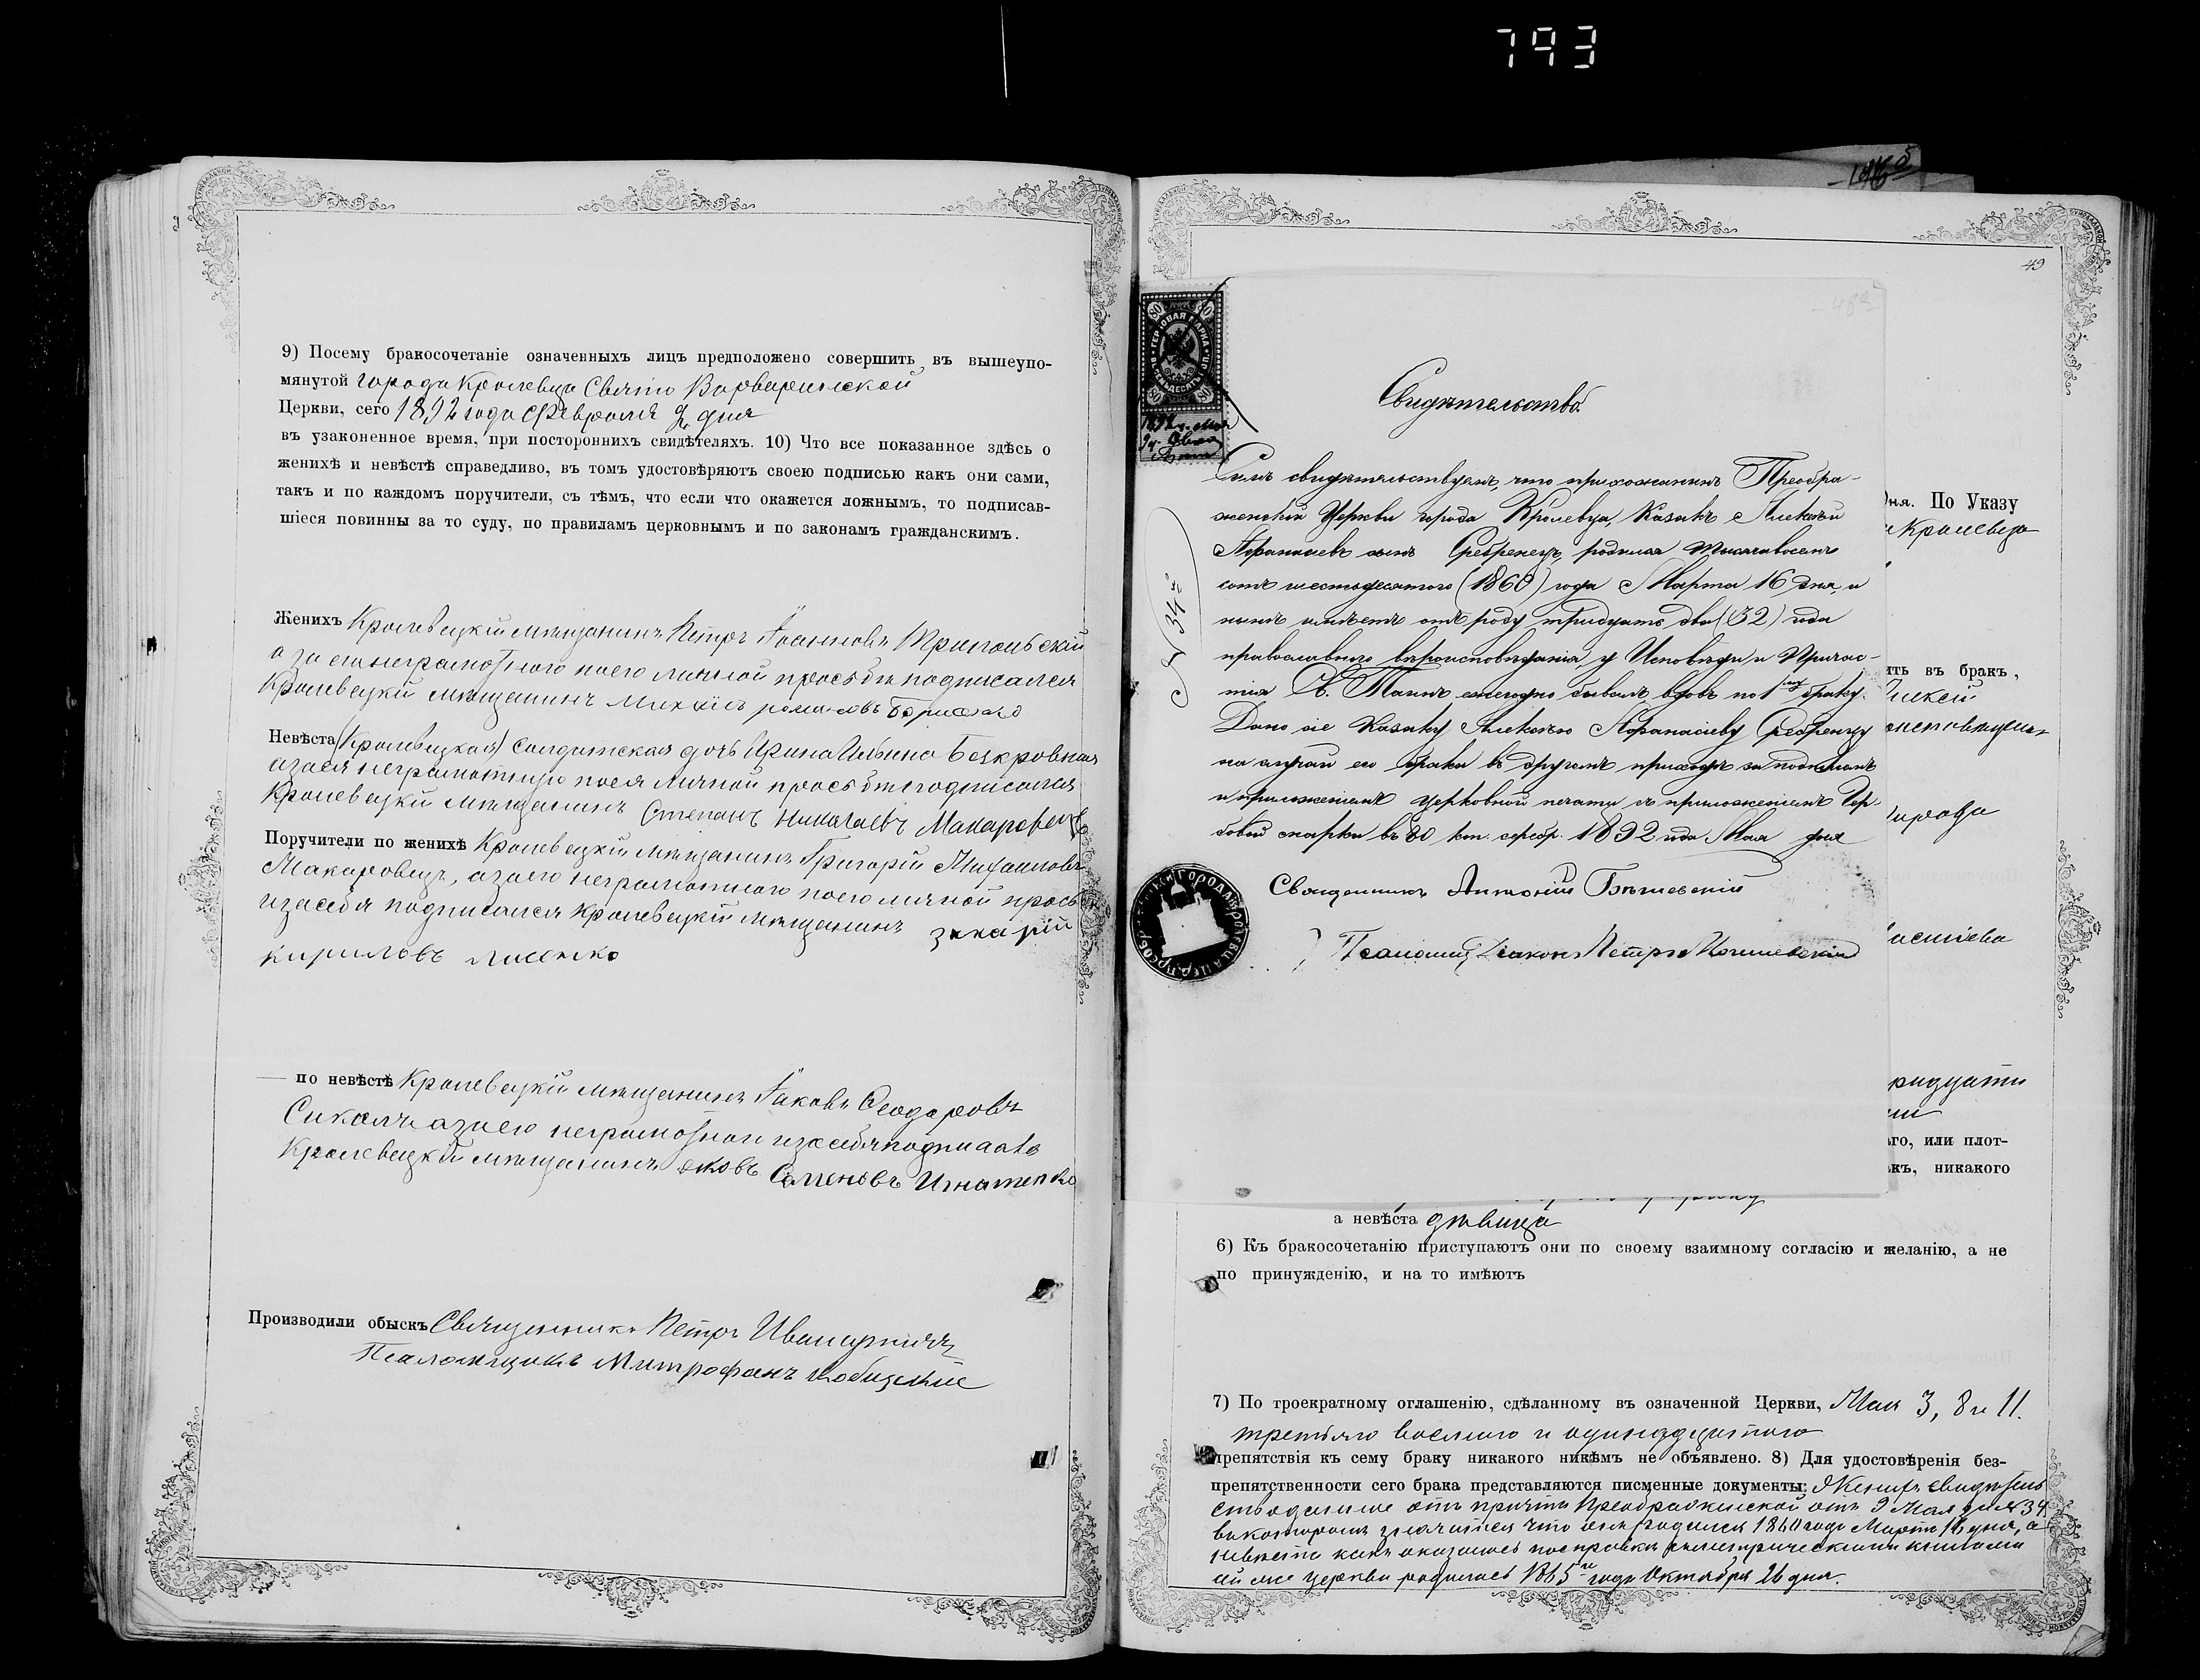 793
9) Посему бракосочетаніе означенныхъ лицъ предположено совершить въ вышеупо-
мянутой города Кролевца Свято Варваринской
Церкви, сего 1892 года Февраля дня
въ узаконенное время, при постороннихъ свидѣтеляхъ. 10) Что все показанное здѣсь о
женихѣ и невѣстѣ справедливо, въ томъ удостовѣряютъ своею подписью какъ они сами,
такъ и по каждомъ поручители, съ тѣмъ, что если что окажется ложнымъ, то подписав-
шіеся повинны за то суду, по правиламъ церковнымъ и по законамъ гражданскимъ.
Женихъ Кролевецкій мѣщанинъ Петръ Іоанновъ
а за его неграмотного по его личной просьбѣ подписался
Кролевецкій мѣщанинъ Михаилъ романовъ
Невѣста (Кролевецкая) Солдатская дочь Ирина Ильина Безкровная
а за ея неграмотную по ея личной просьбѣ подписался
Кролевецкій мѣщанинъ Степанъ Николаевъ Макаровецъ
Поручители по женихѣ Кролевецкій мѣщанинъ Григорій Михаиловъ
Макаровецъ, а за его неграмотного по его личной просьбѣ
и за себя подписался Кролевецкій мѣщанинъ захарій
кириловъ лисенко
по невѣстѣ Кролевецкій мѣщанинъ Іаковъ Ѳеодоровъ
а за его неграмотного и за себя подписался
Кролевецкій мѣщанинъ яковъ Семеновъ Игнатенко
Производили обыскъ Священникъ Петръ
Псаломщикъ Митрофанъ
49
Свидѣтельство.
Симъ свидѣтельствуемъ, что прихожанинъ Преобра-
женской Церкви города Кролевца, Казакъ Алексѣй
Афанасіевъ сынъ Серебренецъ, родился тысяча восемь
сотъ шестьдесятого (1860) года Марта 16 дня, и
нынѣ имѣетъ отъ роду тридцать два (32) года
православного вѣроисповѣданія, у Исповѣди и Причас-
тія Св. Таинъ ежегодно бывалъ вдовъ по 1му браку.
Дано сіе Казаку Алексѣю Афанасіеву Серебренцу
на случай его брака въ другомъ приходѣ за подписомъ
и приложеніемъ церковной печати съ приложеніемъ Гер-
бовой марки въ 80 коп. серебр. 1892 года Мая дня
№ 34й
Священникъ Антоній
Псаломщ. Діаконъ Петръ
дня. По Указу
Кролевца
ить въ бракъ,
города
ридцати
го, или плот-
къ, никакого
а невѣста дѣвица
6) Къ бракосочетанію приступаютъ они по своему взаимному согласію и желанію, а не
по принужденію, и на то имѣютъ
7) По троекратному оглашенію, сдѣланному въ означенной Церкви, Мая 3, 8 и 11.
третьяго восмого и одинадцатого
препятствія къ сему браку никакого никѣмъ не объявлено. 8) Для удостовѣренія без-
препятственности сего брака представляются писменные документы: Женихъ свидѣтель
ство данное отъ причта Преображенской отъ 9 Мая за № 34
въ которомъ значится что онъ родился 1860 года Марта 16 дня, а
невѣста какъ оказалось по справкѣ съ метрическими книгами
сей же церкви родилась 1865го года Октября 26 дня.